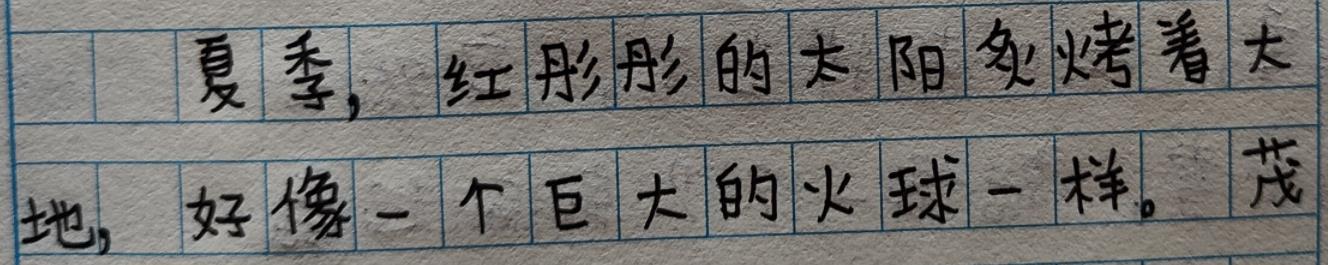 夏季，红彤彤的太阳炙烤着大
地，好像一个巨大的火球一样。茂